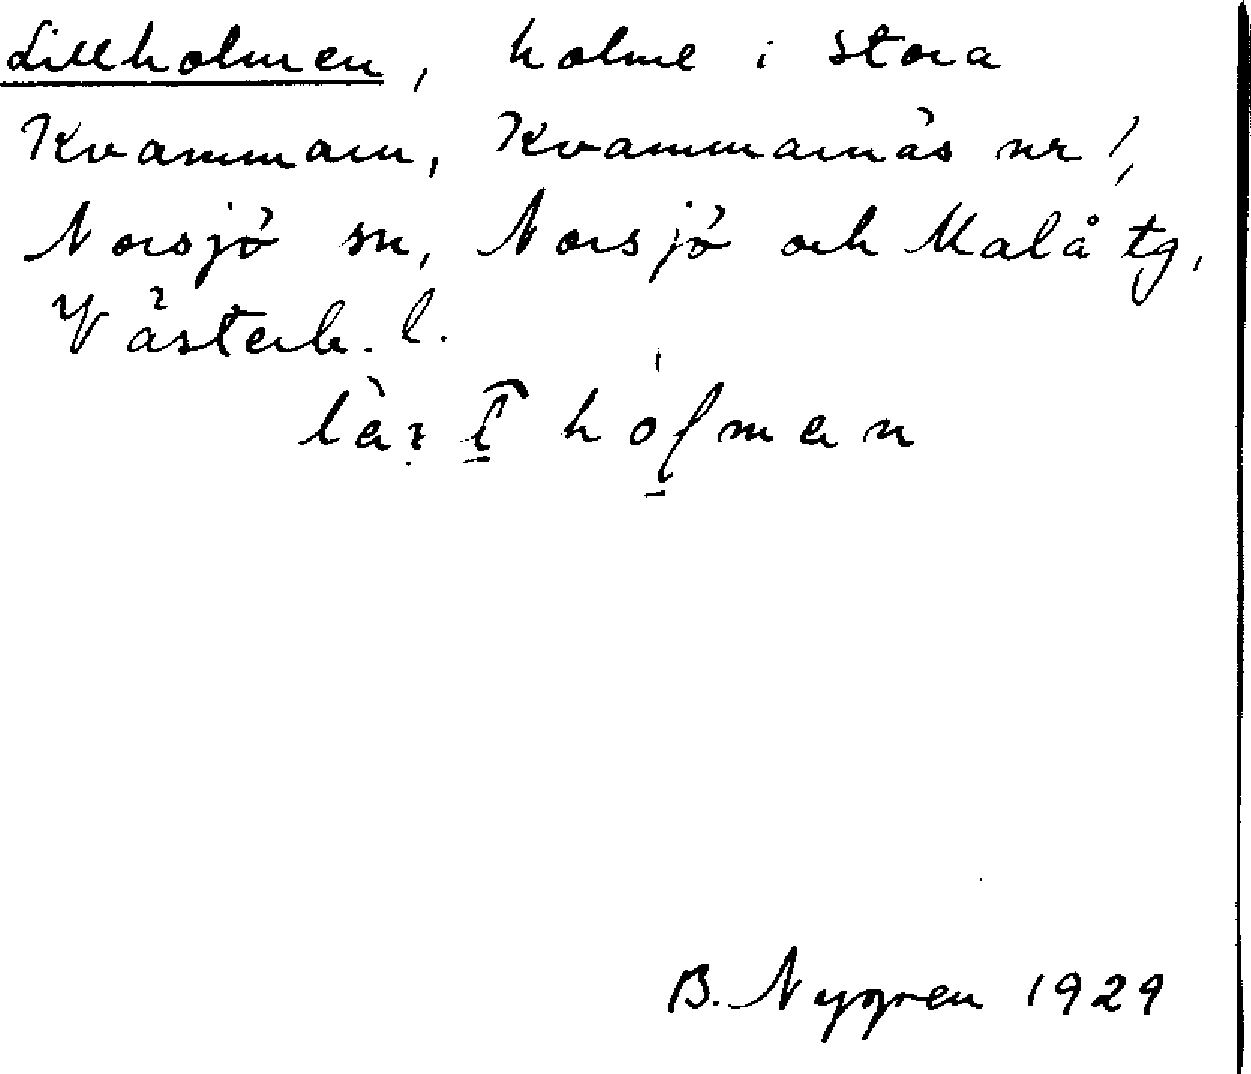 Lillholmen, holme i Stora
Kvammarn, Kvammarnäs nr 1,
Norsjö sn, Norsjö och Malå tg,
Västerb. l.
B. Nygren 1929